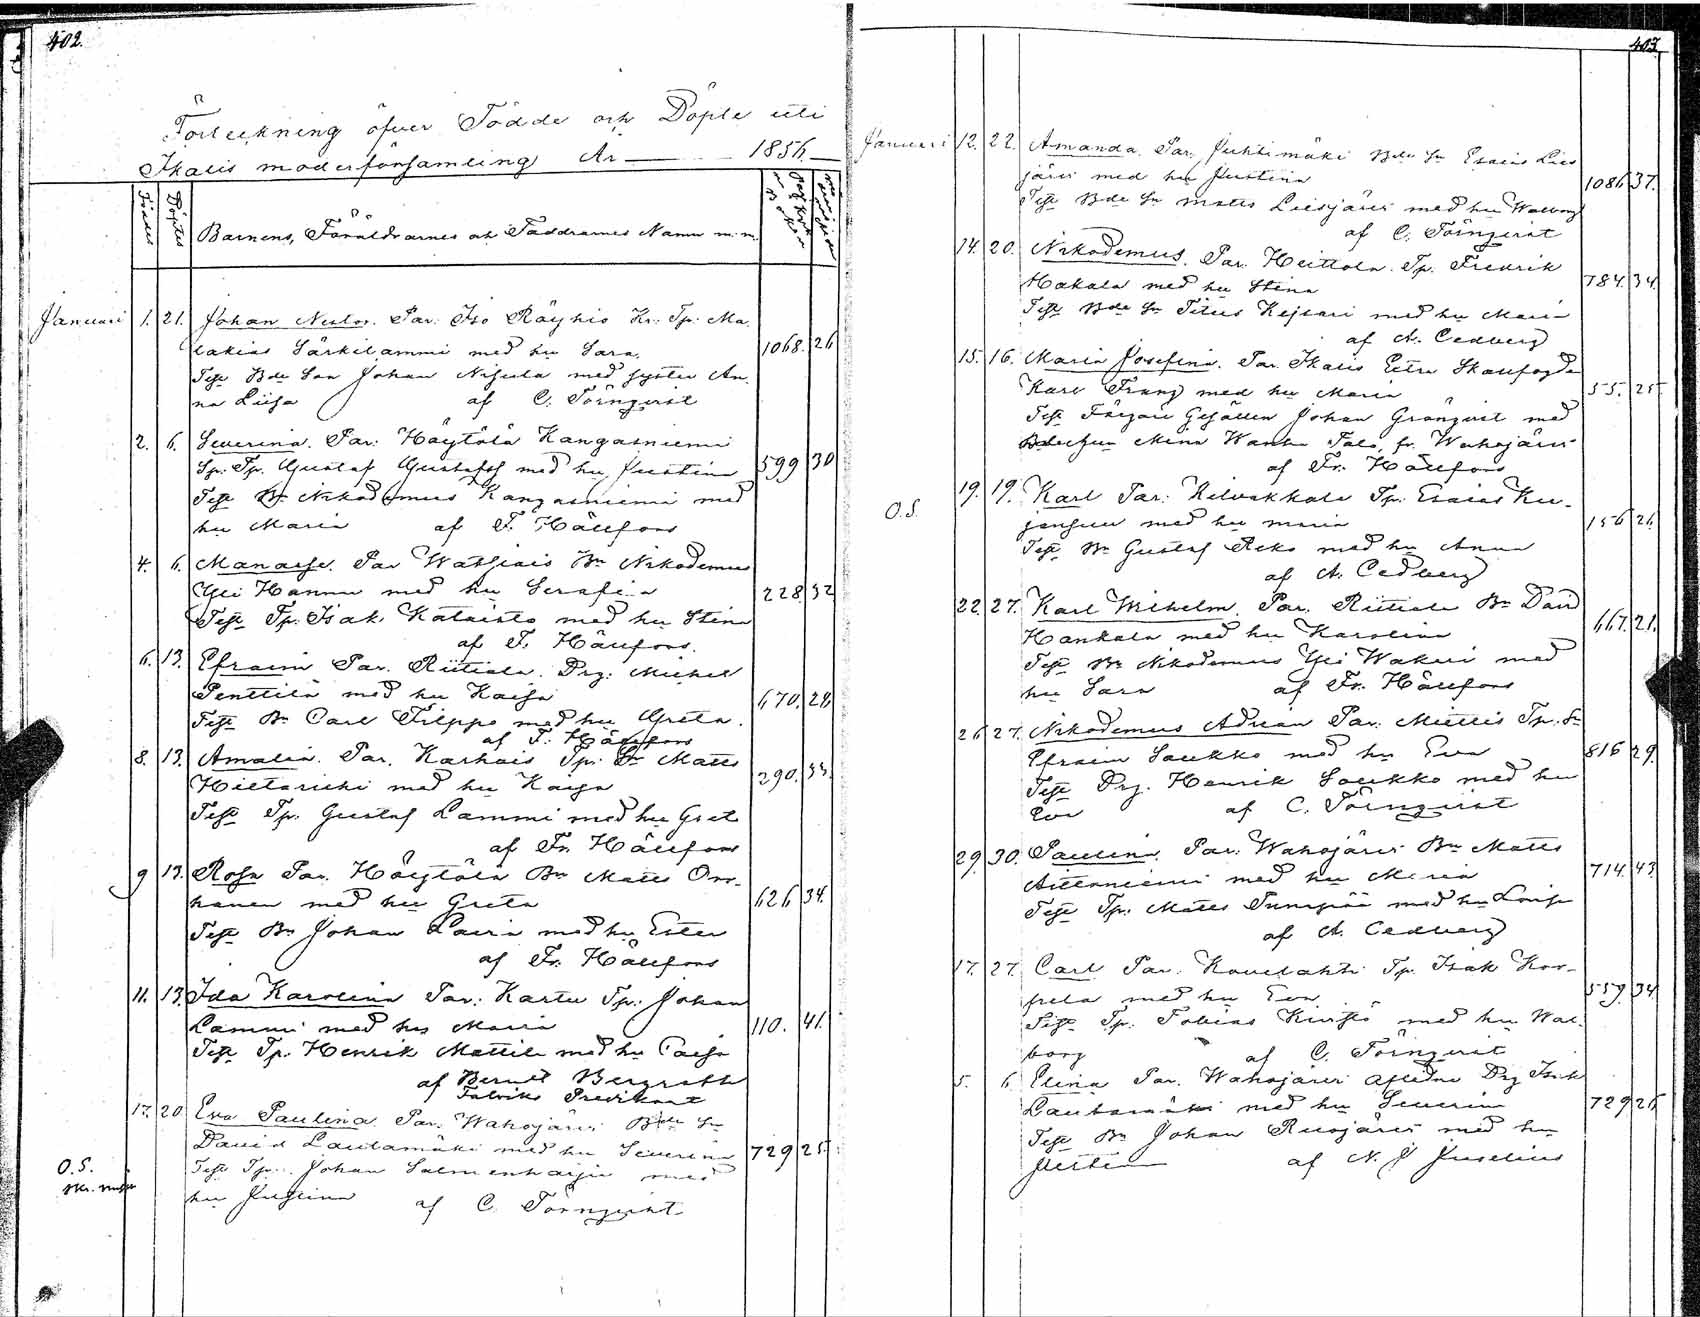 402.
Förteckning öfver Födde och Döpte uti
Ikalis moderförsamling År 1856.
Födde Döptes Barnens, Föräldrarnes och Faddrarnes Namn m.m.
Januari 1. 21. Johan Nestor. Par: Iso Röyhiö Kr: Tp: Ma-
lakias Särkilammi med hu Sara. 1068. 26
Test Bde Son Johan Nisula med syster An-
na Liisa af C. Törnqvist
2. 6. Severina. Par: Höytölä Kangasniemi
Sp. Tp. Gustaf Gustafss med hu Justina 599 30
Test Bn Nikodemus Kangasniemi med
hu Maria af F. Hällfors
4. 6. Manasse. Par Watsiais Bn Nikodemus
Yli Hannu med hu Serafia 228. 32
Test Tp. Isak Kataisto med hu Stina
af F. Hällfors.
6. 13. Efraim Par. Riitiala. Drg. Michel
Penttilä med hu Kaisa 670. 28
Test Bn Carl Filppo med hu Greta.
af F. Hällfors
8. 13. Amalia. Par. Karhois Tp: Sn Matts
Hietarichi med hu Kaisa 290. 33.
Test Tp. Gustaf Lammi med hu Greta
af Fr. Hällfors
9 13. Rosa Par. Höytölä Bn Matts Ors-
hanen med hu Greta 626 34.
Test Bn Johan Lauri med hu Ester
af Fr. Hällfors
11. 13. Ida Karolina Par: Kartu Tp: Johan
Lammi med hu Maria 110. 41.
Test Tp. Henrik Mattila med hu Caisa
af Bernt Bergroth
Fabriks Predikant
17. 20 Eva Paulina Par. Wahojärvi Bde Sn
David Lautamäki med hu Severina 729 25.
O.S. Test Tp. Johan Salmenharju med
hu Justina af C. Törnqvist
403.
Januari 12. 22. Amanda. Par. Juhtimäki Bde Sn Esaias Lies
järvi med hu Justina 1086 37.
Test Bde Sn Matts Liesjärvi med hu Walborg
af C. Törnqvist
14. 20. Nikodemus. Par. Heittola. Tp. Fredrik
Hakala med hu Stina 784. 34.
Test Bde Sn Titus Kejsari med hu Maria
af A. Cedberg
15. 16. Maria Josefina. Par. Ikalis Extra Skallfogde
Karl Franz med hu Maria 55. 25.
Test Färgare Gesällen Johan Grönqvist med
Mina Wanha Talo, fr. Wahojärvi
af Fr. Hällfors
O.S. 19. 19. Karl Par: Kilvakkala Tp: Esaias Ku-
janpuu med hu Maria 156 26.
Test Bn Gustaf Reko med hu Anna
af A. Cedberg
22. 27. Karl Wilhelm. Par. Riitiala Bn David
Hankala med hu Karolina 667. 21.
Test Bn Nikodemus Yli Wakeri med
hu Sara af Fr. Hällfors
26 27. Nikodemus Adrian Par: Miettis Tp. Sn
Efraim Soukko med hu Eva 816 29.
Test Drg. Henrik Soukko med hu
Eva af C. Törnqvist
29. 30. Paulina. Par: Wahojärvi Bn Matts
Aittoniemi med hu Maria 714. 43.
Test Tp: Matts med hu Lovisa
af A. Cedberg
17. 27. Carl Par. Kovelahti Tp. Isak Kor-
pela med hu Eva. 559. 34.
Test Tp. Tobias Kivistö med hu Wal-
borg af C. Törnqvist
5. 6 Elina Par. Wahojärvi aflidne Drg Isak
Lautamäki med hu Severina 729 26.
Test Bn Johan Ruojärvi med hu
Justina af N. J Juselius